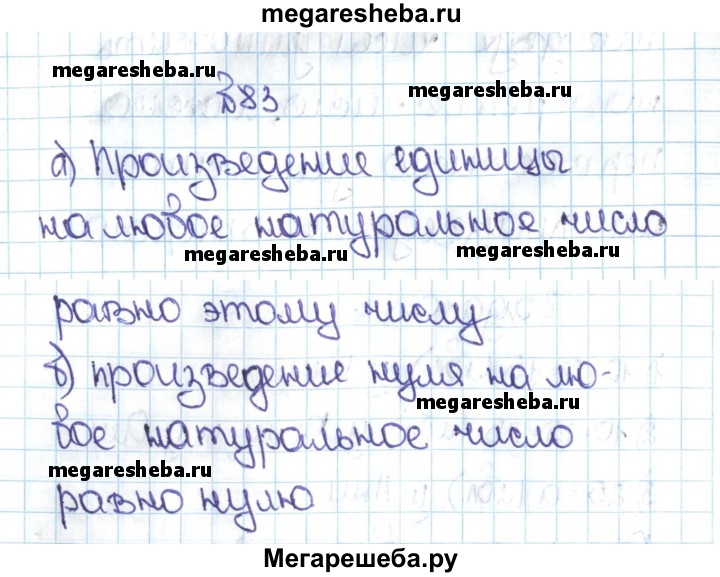 megaresheba.ru
megaresheba.ru
№83
megaresheba.ru
а) произведение единицы
на любое натуральное число
megaresheba.ru
megaresheba.ru
равно этому числу
б) произведение нуля на лю-
megaresheba.ru
бое натуральное число
megaresheba.ru
равно нулю
Мегарешеба.ру